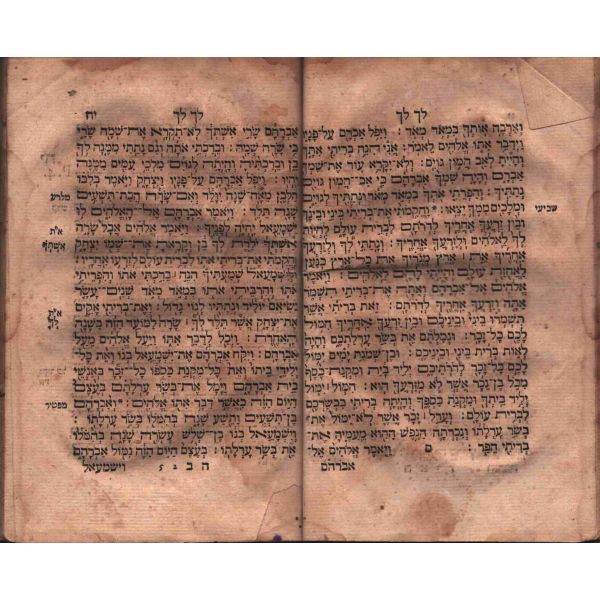 לך לך
וארבה אותך במאד מאד : ויפל אברם על־פניו
וידבר אתו אלהים לאמר : אני הנה בריתי אתך
והיית לאב המון גוים : ולא־יקרא עוד את־שמך
אברם והיה שמך אברהם כי אב־המון גוים
נתתיך : והפרתי אתך במאד מאד ונתתיך לגוים
ומלכים ממך יצאו : והקמתי את־בריתי ביני ובינך
שביעי
ובין זרעך אחריך לדרתם לברית עולם להיות
לך לאלהים ולזרעך אחריך : ונתתי לך ולזרעך
אחריך את ארץ מגריך את כל־ארץ כנען
לאחזת עולם והייתי להם לאלהים : ויאמר
אלהים אל־אברהם ואתה את־בריתי תשמר
אתה וזרעך אחריך לדרתם : זאת בריתי אשר
תשמרו ביני וביניכם ובין זרעך אחריך המול
לכם כל־זכר : ונמלתם את בשר ערלתכם והיה
לאות ברית ביני וביניכם : ובן־שמנת ימים ימול
לכם כל־זכר לדרתיכם יליד בית ומקנת־כסף
מכל בן־נכר אשר לא מזרעך הוא : המול ׀ ימול
יליד ביתך ומקנת כספך והיתה בריתי בבשרכם
לברית עולם : וערל ׀ זכר אשר לא־ימול את־
בשר ערלתו ונכרתה הנפש ההוא מעמיה את־
בריתי הפר : ס ויאמר אלהים אל־
אברהם
לך לך
יח
אברהם שרי אשתך לא־תקרא את־שמה שרי
כי שרה שמה : וברכתי אתה וגם נתתי ממנה לך
בן וברכתיה והיתה לגוים מלכי עמים ממנה
יהיו : ויפל אברהם על־פניו ויצחק ויאמר בלבו
הלבן מאה־שנה יולד ואם־שרה הבת־תשעים
מלרע
שנה תלד : ויאמר אברהם אל־האלהים לו
ישמעאל יחיה לפניך : ויאמר אלהים אבל שרה
א״ת
אשתך ילדת לך בן וקראת את־שמו יצחק
אשתך
והקמתי את־בריתי אתו לברית עולם לזרעו אחריו :
ולישמעאל שמעתיך הנה ׀ ברכתי אתו והפריתי
אתו והרביתי אתו במאד מאד שנים־עשר
נשיאם יוליד ונתתיו לגוי גדול : ואת־בריתי אקים
א״ת
את־יצחק אשר תלד לך שרה למועד הזה בשנה
לך
האחרת : ויכל לדבר אתו ויעל אלהים מעל
אברהם : ויקח אברהם את־ישמעאל בנו ואת כל־
ילידי ביתו ואת כל־מקנת כספו כל־זכר באנשי
בית אברהם וימל את־בשר ערלתם בעצם
היום הזה כאשר דבר אתו אלהים : ואברהם
מפטיר
בן־תשעים ותשע שנה בהמלו בשר ערלתו :
וישמעאל בנו בן־שלש עשרה שנה בהמלו
את בשר ערלתו : בעצם היום הזה נמול אברהם
ה ב 2 5
וישמעאל